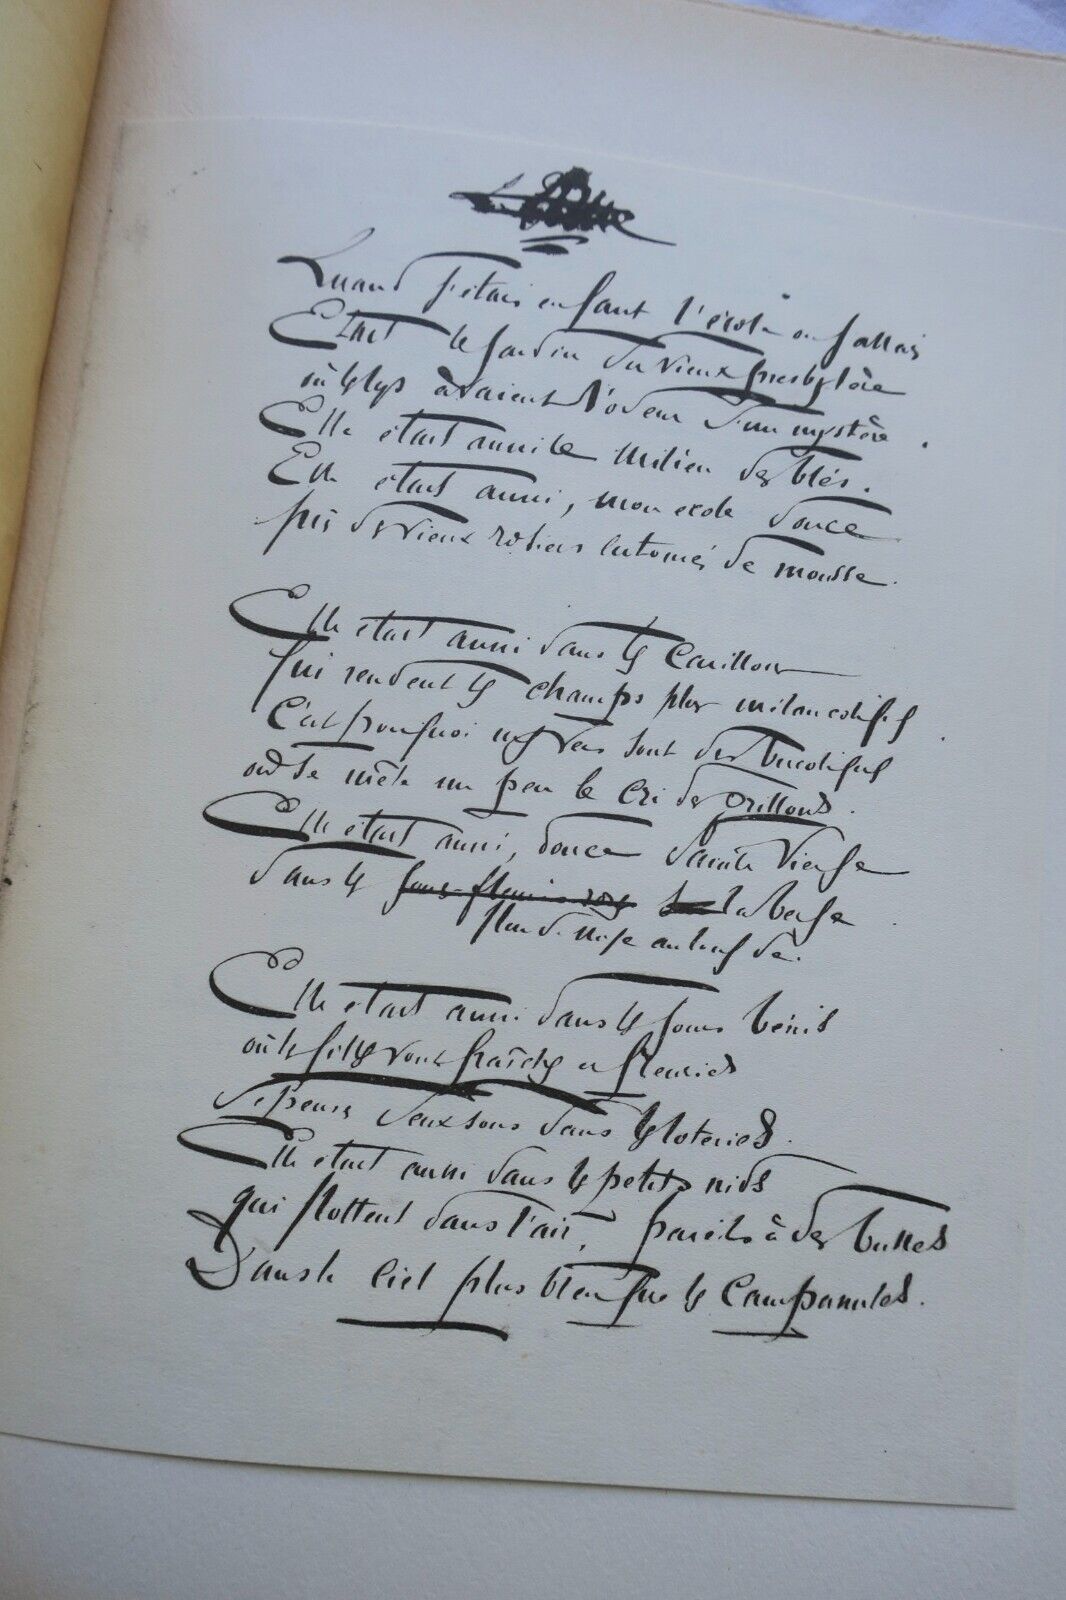 Quand j'étais enfant l'école où j'allais
Était le jardin du vieux presbytère
où les lys avaient l'odeur d'un mystère.
Elle était aussi le milieu des blés.
Elle était aussi, mon école douce
près de vieux rosiers de mousse.
Elle était aussi dans les carillons
qui rendent les champs plus mélancoliques
C'est pourquoi mes vers sont des bucoliques
où se mêle un peu le cri des grillons.
Elle était aussi, douce Sainte Vierge
dans les la berge
fleur de neige
Elle était aussi dans les jours bénis
où les filles vont fraîches et fleuries
dépenser deux sous dans les loteries.
Elle était aussi dans les petits nids
qui flottent dans l'air, pareils à des bulles
Dans le ciel plus bleu que les campanules.